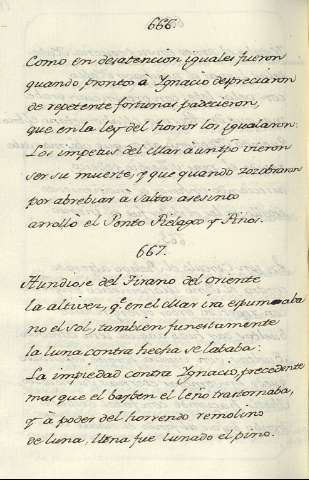 666.
Como en desatencion iguales fueron
quando prontos à Ygnacio despreciaron
de repetente fortunas padecieron,
que en la ley del horror los igualaron.
Los impetus del Mar à un tpo vieron
ser su muerte, y que quando zozobraron
por abrebiar à Saltos asesinto
arrollò el Ponto Pielagos y Pinos.
667.
Hundiose del Tirano del oriente
la altivez, q.e en el Mar ira espumaba
no el Sol, tambien funestamente
la luna contra hecha se lababa:
La impiedad contra Ygnacio precedente
mas que el barben el leño trastornaba,
y à poder del horrendo remolino
de luna, llena fue lunado el pino.